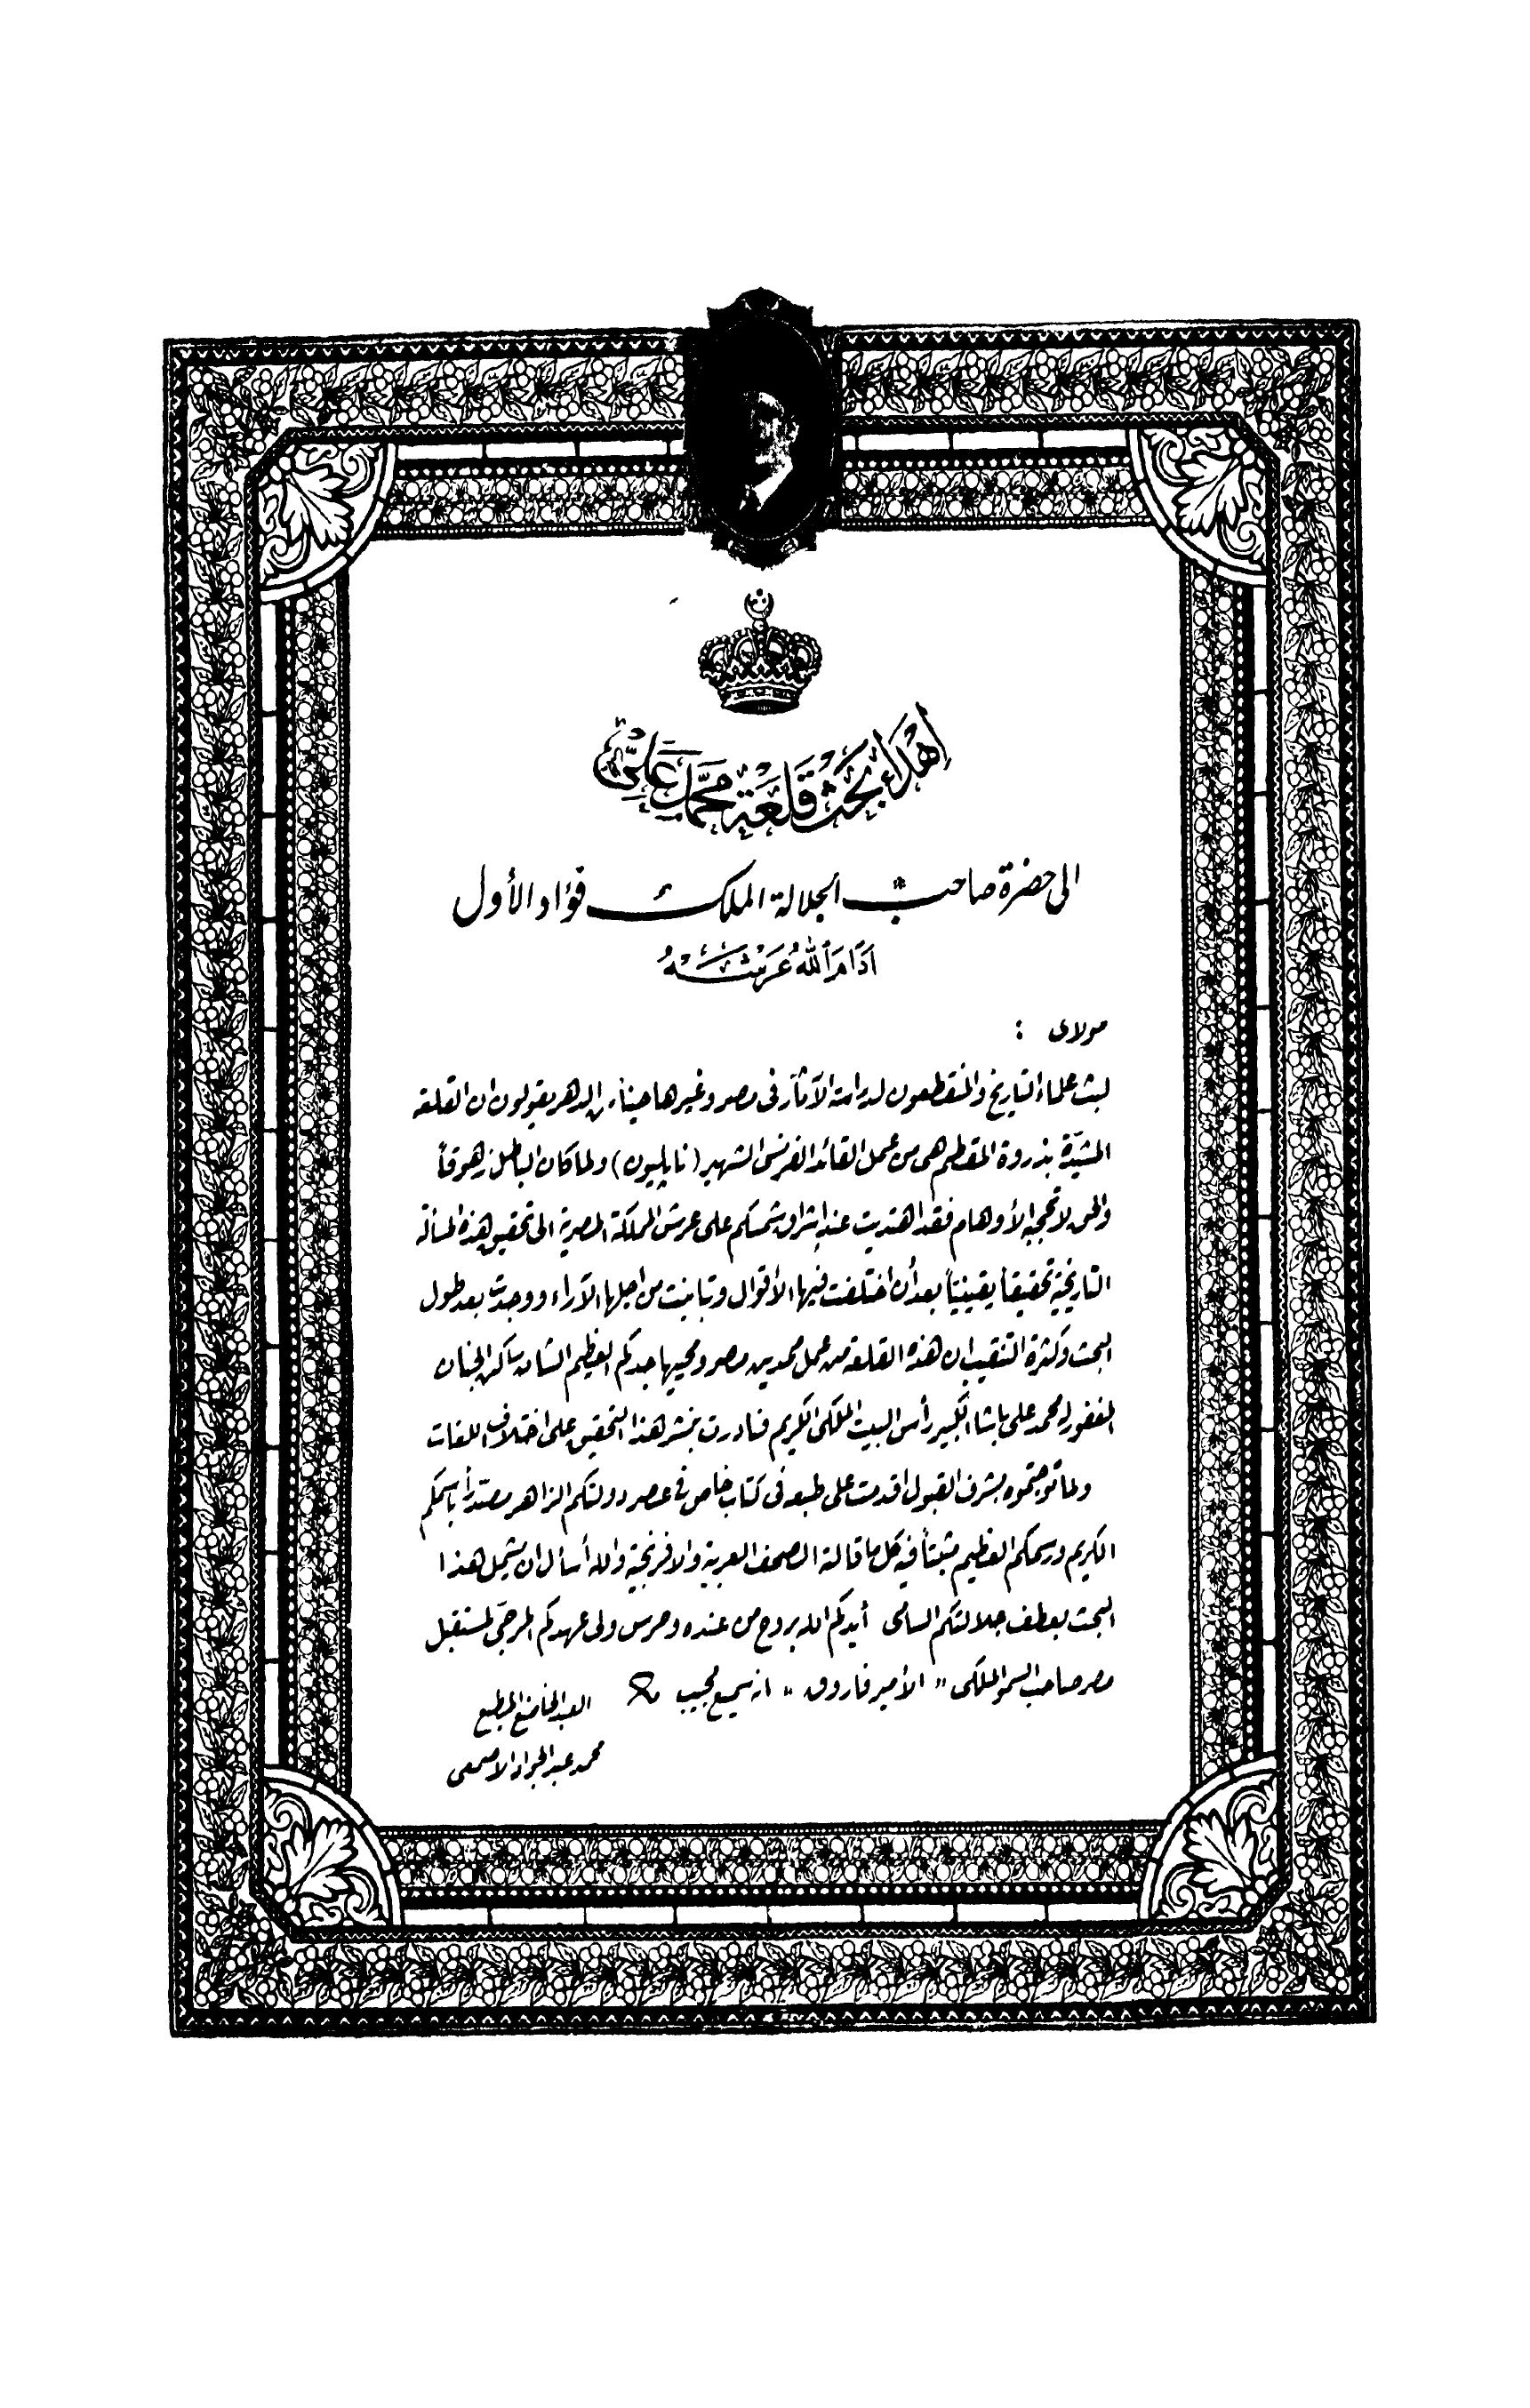 إهداء بحث قلعة محمد علي
الى حضرة صاحب الجلالة الملك فؤاد الأول
أدام الله عرشه
مولاى :
لبث علماء التاريخ والمنقطعون لدراسة الآثار فى مصر وغيرها حيناً من الدهر يقولون ان القلعة
المشيّدة بذروة المقطم هى من عمل القائد الفرنسى الشهير (نابليون) ولما كان الباطل زهوقاً
والحق لا تحجبه الأوهام فقد اهتديت عند إشراق شمسكم على عرش المملكة المصرية الى تحقيق هذه المسألة
التاريخية تحقيقاً يقينياً بعد أن اختلفت فيها الأقوال وتباينت من أجلها الآراء ووجدت بعد طول
البحث وكثرة التنقيب ان هذه القلعة من عمل ممدين مصر ومحييها جدكم العظيم الشان ساكن الجنان
المغفور له محمد على باشا الكبير رأس البيت الملكى الكريم فبادرت بنشر هذا التحقيق على اختلاف اللغات
ولما توجتموه بشرف القبول اقدمت على طبعه فى كتاب خاص فى عصر دولتكم الزاهر مصدّراً باسمكم
الكريم ورسمكم العظيم مثبتاً فيه كل ما قالته الصحف العربية والافرنجية والله أسأل ان يشمل هذا
البحث بعطف جلالتكم السامى أيدكم الله بروح من عنده وحرس ولى عهدكم المرجّى لمستقبل
مصر صاحب السمو الملكى " الأمير فاروق " انه سميع مجيب
العبد الخاضع المطيع
محمد عبد الجواد الاصمعى